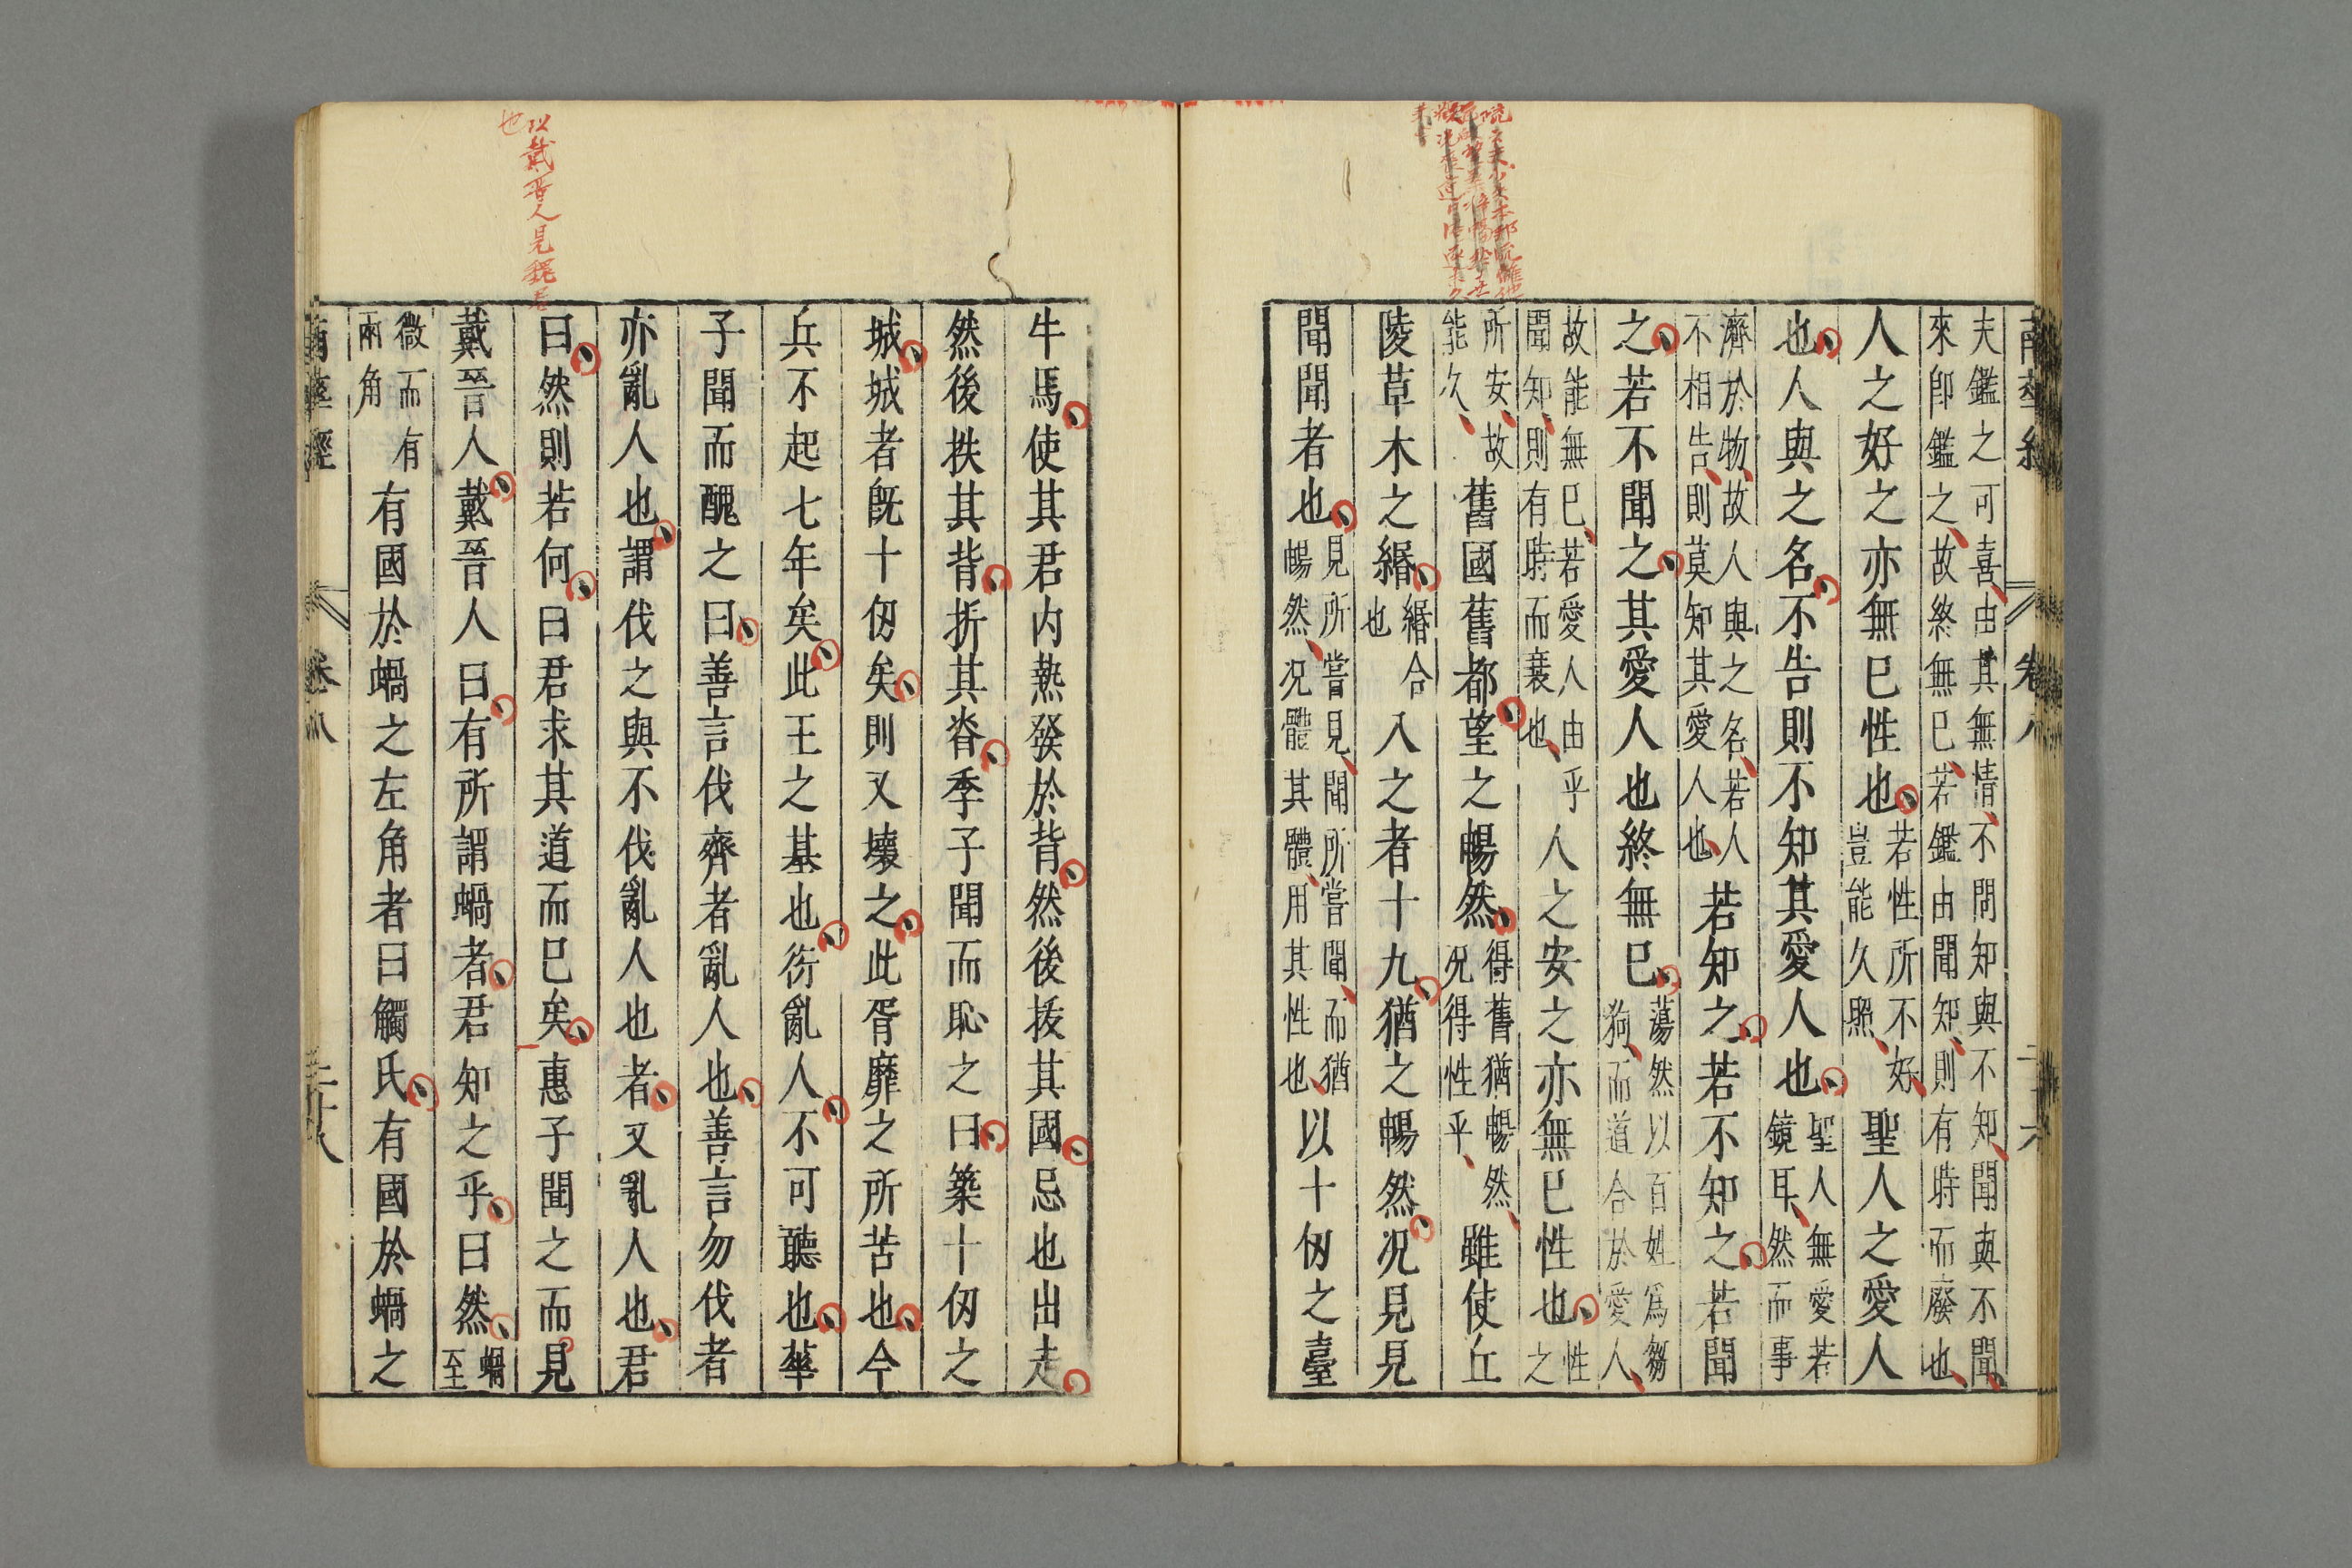 南華經 卷八
夫鑑之可喜由其無情不問知與不知聞與不聞
來卽鑑之故終無已若鑑由聞知則有時而廢也
人之好之亦無已性也若性所不好
豈能久照聖人之愛人
也人與之名不告則不知其愛人也聖人無愛若
鏡耳然而事
濟於物故人與之名若人
不相告則莫知其愛人也若知之若不知之若聞
之若不聞之其愛人也終無已蕩然以百姓爲芻
狗而道合於愛人
故能無已若愛人由乎
聞知則有時而衰也人之安之亦無已性也性
之
所安故
能久舊國舊都望之暢然得舊猶暢然
况得性乎雖使丘
陵草木之緡緡合
也入之者十九猶之暢然况見見
聞聞者也見所嘗見聞所嘗聞而猶
暢然况體其體用其性也以十仞之臺
牛馬使其君內熱發於背然後拔其國忌也出走
然後抶其背折其脊季子聞而恥之曰築十仞之
城城者旣十仞矣則又壞之此胥靡之所苦也今
兵不起七年矣此王之基也衍亂人不可聽也華
子聞而醜之曰善言伐齊者亂人也善言勿伐者
亦亂人也謂伐之與不伐亂人也者又亂人也君
曰然則若何曰君求其道而已矣惠子聞之而見
戴晉人戴晉人曰有所謂蝸者君知之乎曰然蝸
至
微而有
兩角有國於蝸之左角者曰觸氏有國於蝸之
南華經 卷八 二十八
以戴晉人見魏君
也